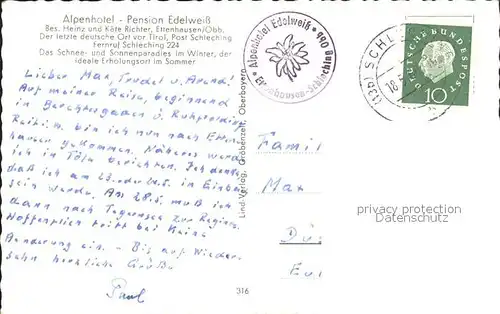 Alpenhotel - Pension Edelweiß
Bes. Heinz und Käte Richter, Ettenhausen/Obb.
Der letzte deutsche Ort vor Tirol, Post Schleching
Fernruf Schleching 224
Das Schnee- und Sonnenparadies im Winter, der
ideale Erholungsort im Sommer
Alpenhotel Edelweiß
Ettenhausen-Schleching
(13b) SCHL
18.
DEUTSCHE BUNDESPOST
10
Lieber Max, Trudel u.
Auf meiner Reise, beginnend
in Berchtesgaden u. Ruhpolding
bin ich nun nach Etten-
hausen gekommen. Näheres werde
ich in Tölz berichten. Ich denke
daß ich am 23. oder 24.5. in
sein werde. Am 28.5. muß ich
dann nach Tegernsee zur
Hoffentlich tritt bei keine
Änderung ein. - Bis auf Wieder-
sehn herzliche Grüße
Paul
Lind-Verlag, Gröbenzell, Oberbayern
316
Famil
Max
privacy protection
Datenschutz